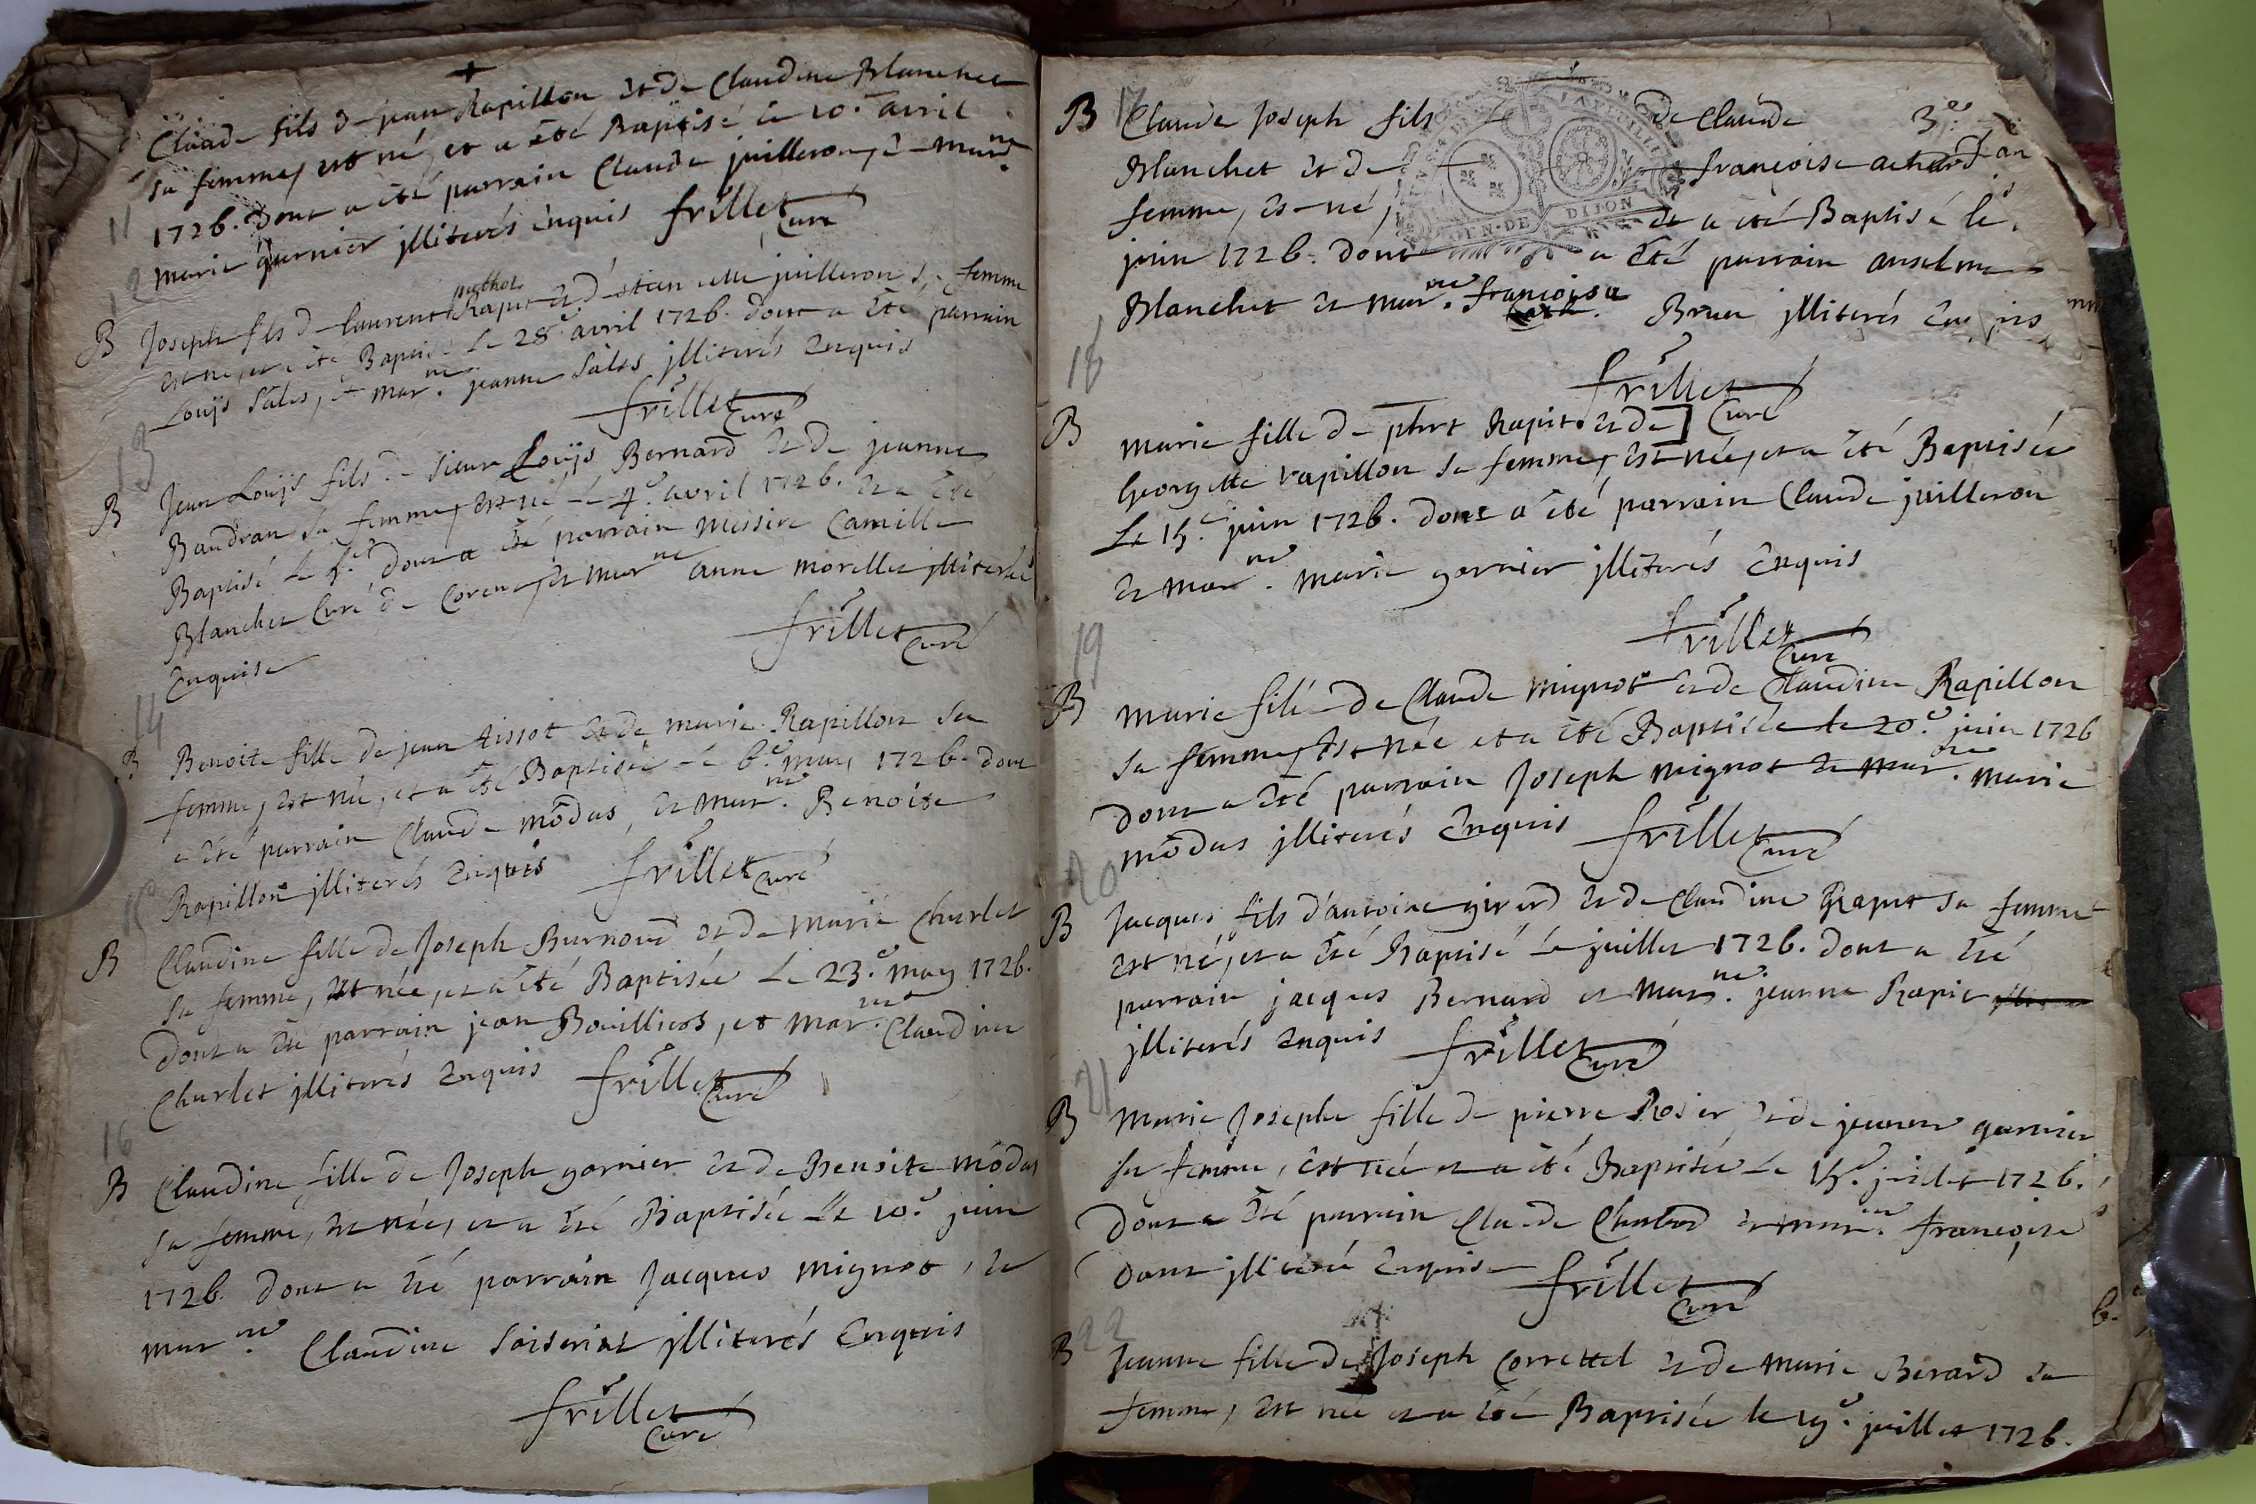 Claude fils de jean Rapillon et de Claudine Blanchet
sa femme, est né, et a été Baptisé le 10.e avril
11
1726. dont a été parrain Claude juilleron, et mar.ne
marie garnier jlliterés Enquis frillet Curé
12
B Joseph fils de laurent Rapit et d'étiennette juilleron sa femme
est né, et a été Baptisé le 28.e avril 1726. dont a été parrain
Louÿs Sales, et mar.ne jeanne Sales jlliterés Enquis
frillet Curé
13
B Jean Louÿs fils de sieur Louÿs Bernard et de jeanne
Baudran sa femme, est né le 4.e avril 1726. et a été
Baptisé le 5.e dont a été parrain messire Camille
Blanchet Curé de Corent, et mar.ne anne morellet jlliterée
Enquise
frillet Curé
14
B Benoite fille de jean tissot et de marie Rapillon sa
femme, est née, et a été Baptisée le 6.e may 1726. dont
a été parrain Claude mõdas, et mar.ne Benoite
Rapillon jlliterés Enquis frillet Curé
15
B Claudine fille de Joseph Burnoud et de marie Charlet
sa femme, est née, et a été Baptisée le 23.e may 1726.
dont a été parrain jean Bouillieos, et mar.ne Claudine
Charlet jlliterés Enquis frillet Curé
16
B Claudine fille de Joseph garnier et de Benoite mõdas
sa femme, est née, et a été Baptisée le 10.e juin
1726. dont a été parrain Jacques mignot, et
mar.ne Claudine Soiseriat jlliterés Enquis
frillet Curé
17
B Claude Joseph fils de Claude 3.e
Blanchet et de françoise achard sa
femme, est né, et a été Baptisé le
juin 1726. dont a été parrain anselme
Blanchet et mar.ne françoise Brun jlliterés Enquis
GEN·DE DIJON
18
frillet Curé
B marie fille de phrt Rapit et de
Georgette rapillon sa femme, est née, et a été Baptisée
le 15.e juin 1726. dont a été parrain Claude juilleron
et mar.ne marie garnier jlliterés Enquis
frillet Curé
19
B marie fille de Claude mignot et de Claudine Rapillon
sa femme, est née et a été Baptisée le 20.e juin 1726
dont a été parrain Joseph mignot et mar.ne marie
mõdas jlliterés Enquis frillet Curé
20
B Jacques fils d'antoine girard et de Claudine Rapit sa femme
est né, et a été Baptisé le juillet 1726. dont a été
parrain jacques Bernard et mar.ne jeanne Rapit
jlliterés Enquis frillet Curé
21
B Marie Josephe fille de pierre Rosier et de jeanne garnier
sa femme, est née et a été Baptisée le 15.e juillet 1726.
dont a été parrain Claude Chatard et mar.ne françoise
dant jlliterée Enquise frillet Curé
22
B Jeanne fille de Joseph Correttel et de marie Berard sa
femme, est née et a été Baptisée le 19.e juillet 1726.